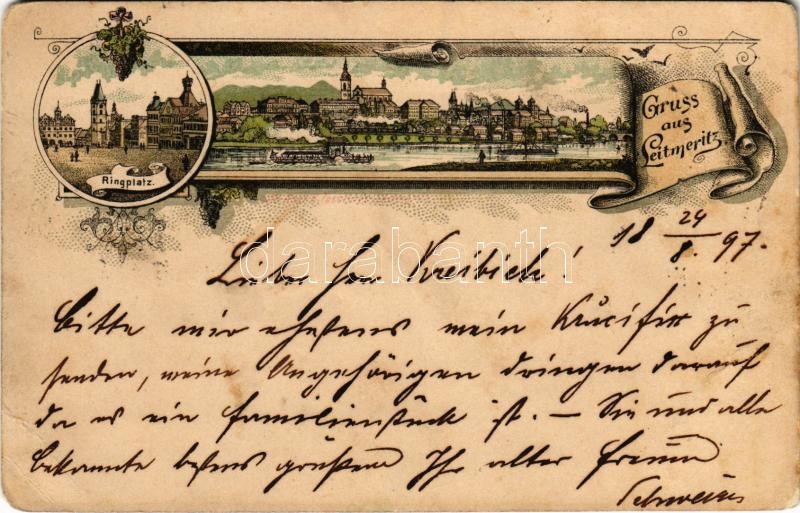 Ringplatz.
Gruss
aus
Leitmeritz
18 24/8. 97.
Lieber Herr Kreibich!
Bitte mir ehestens mein Krucifix zu
senden, meine Angehörigen dringen darauf
da es ein Familienstück ist. – Sie und alle
bekannte bestens grüßend Ihr alter Freund
darabanth